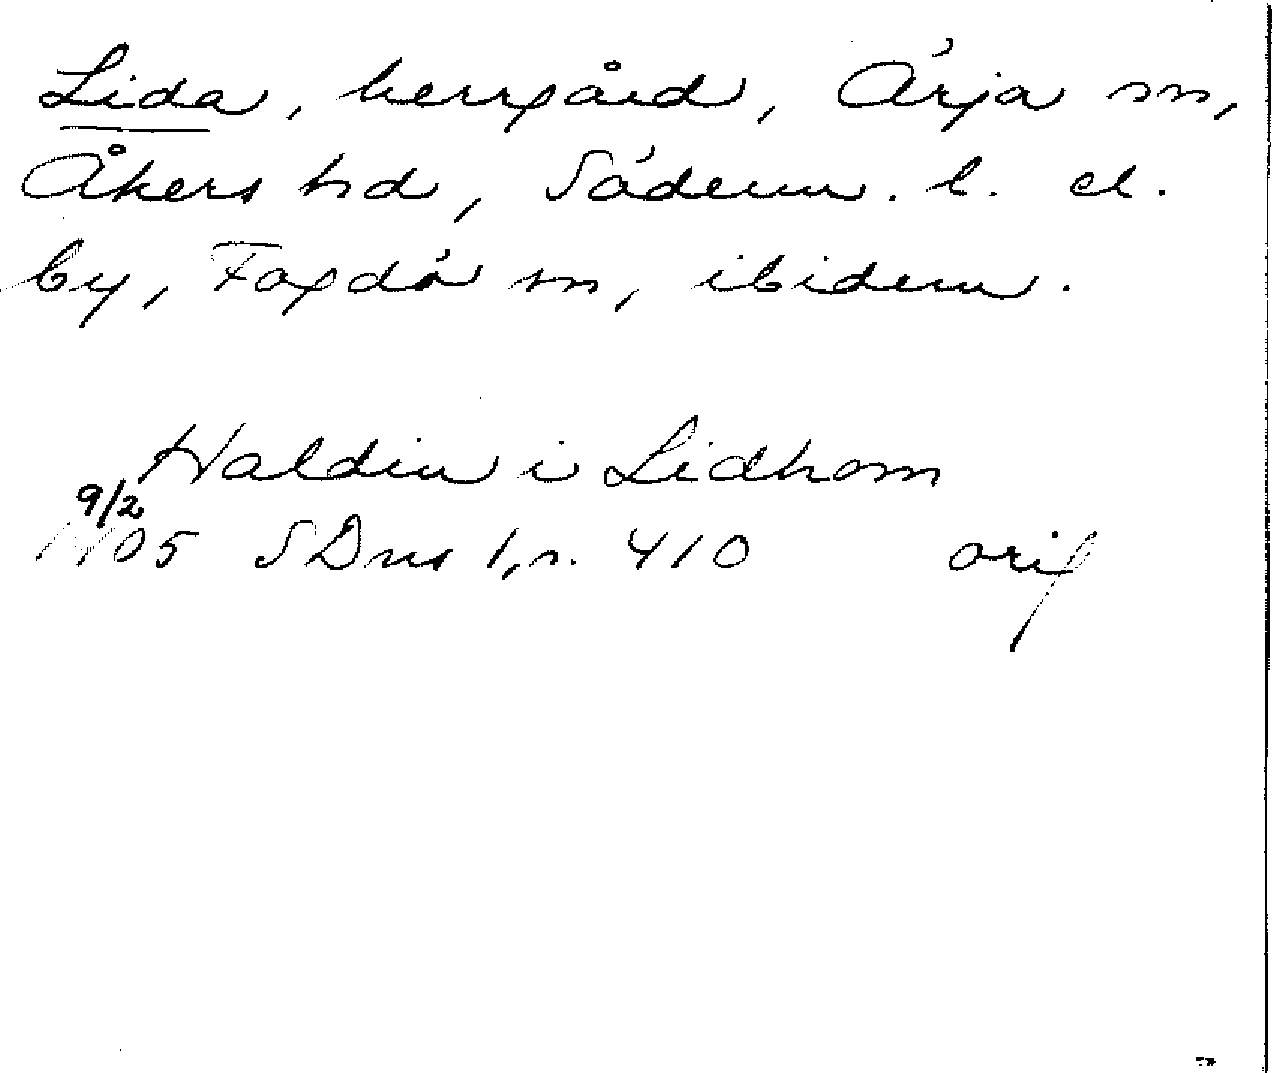 Lida, herrgård, Ärja sn,
Åkers hd, Söderm. l. el.
by, Fogdö sn, ibidem.
Haldin i Lidhom
9/2
1405 SDns 1, n. 410 orig